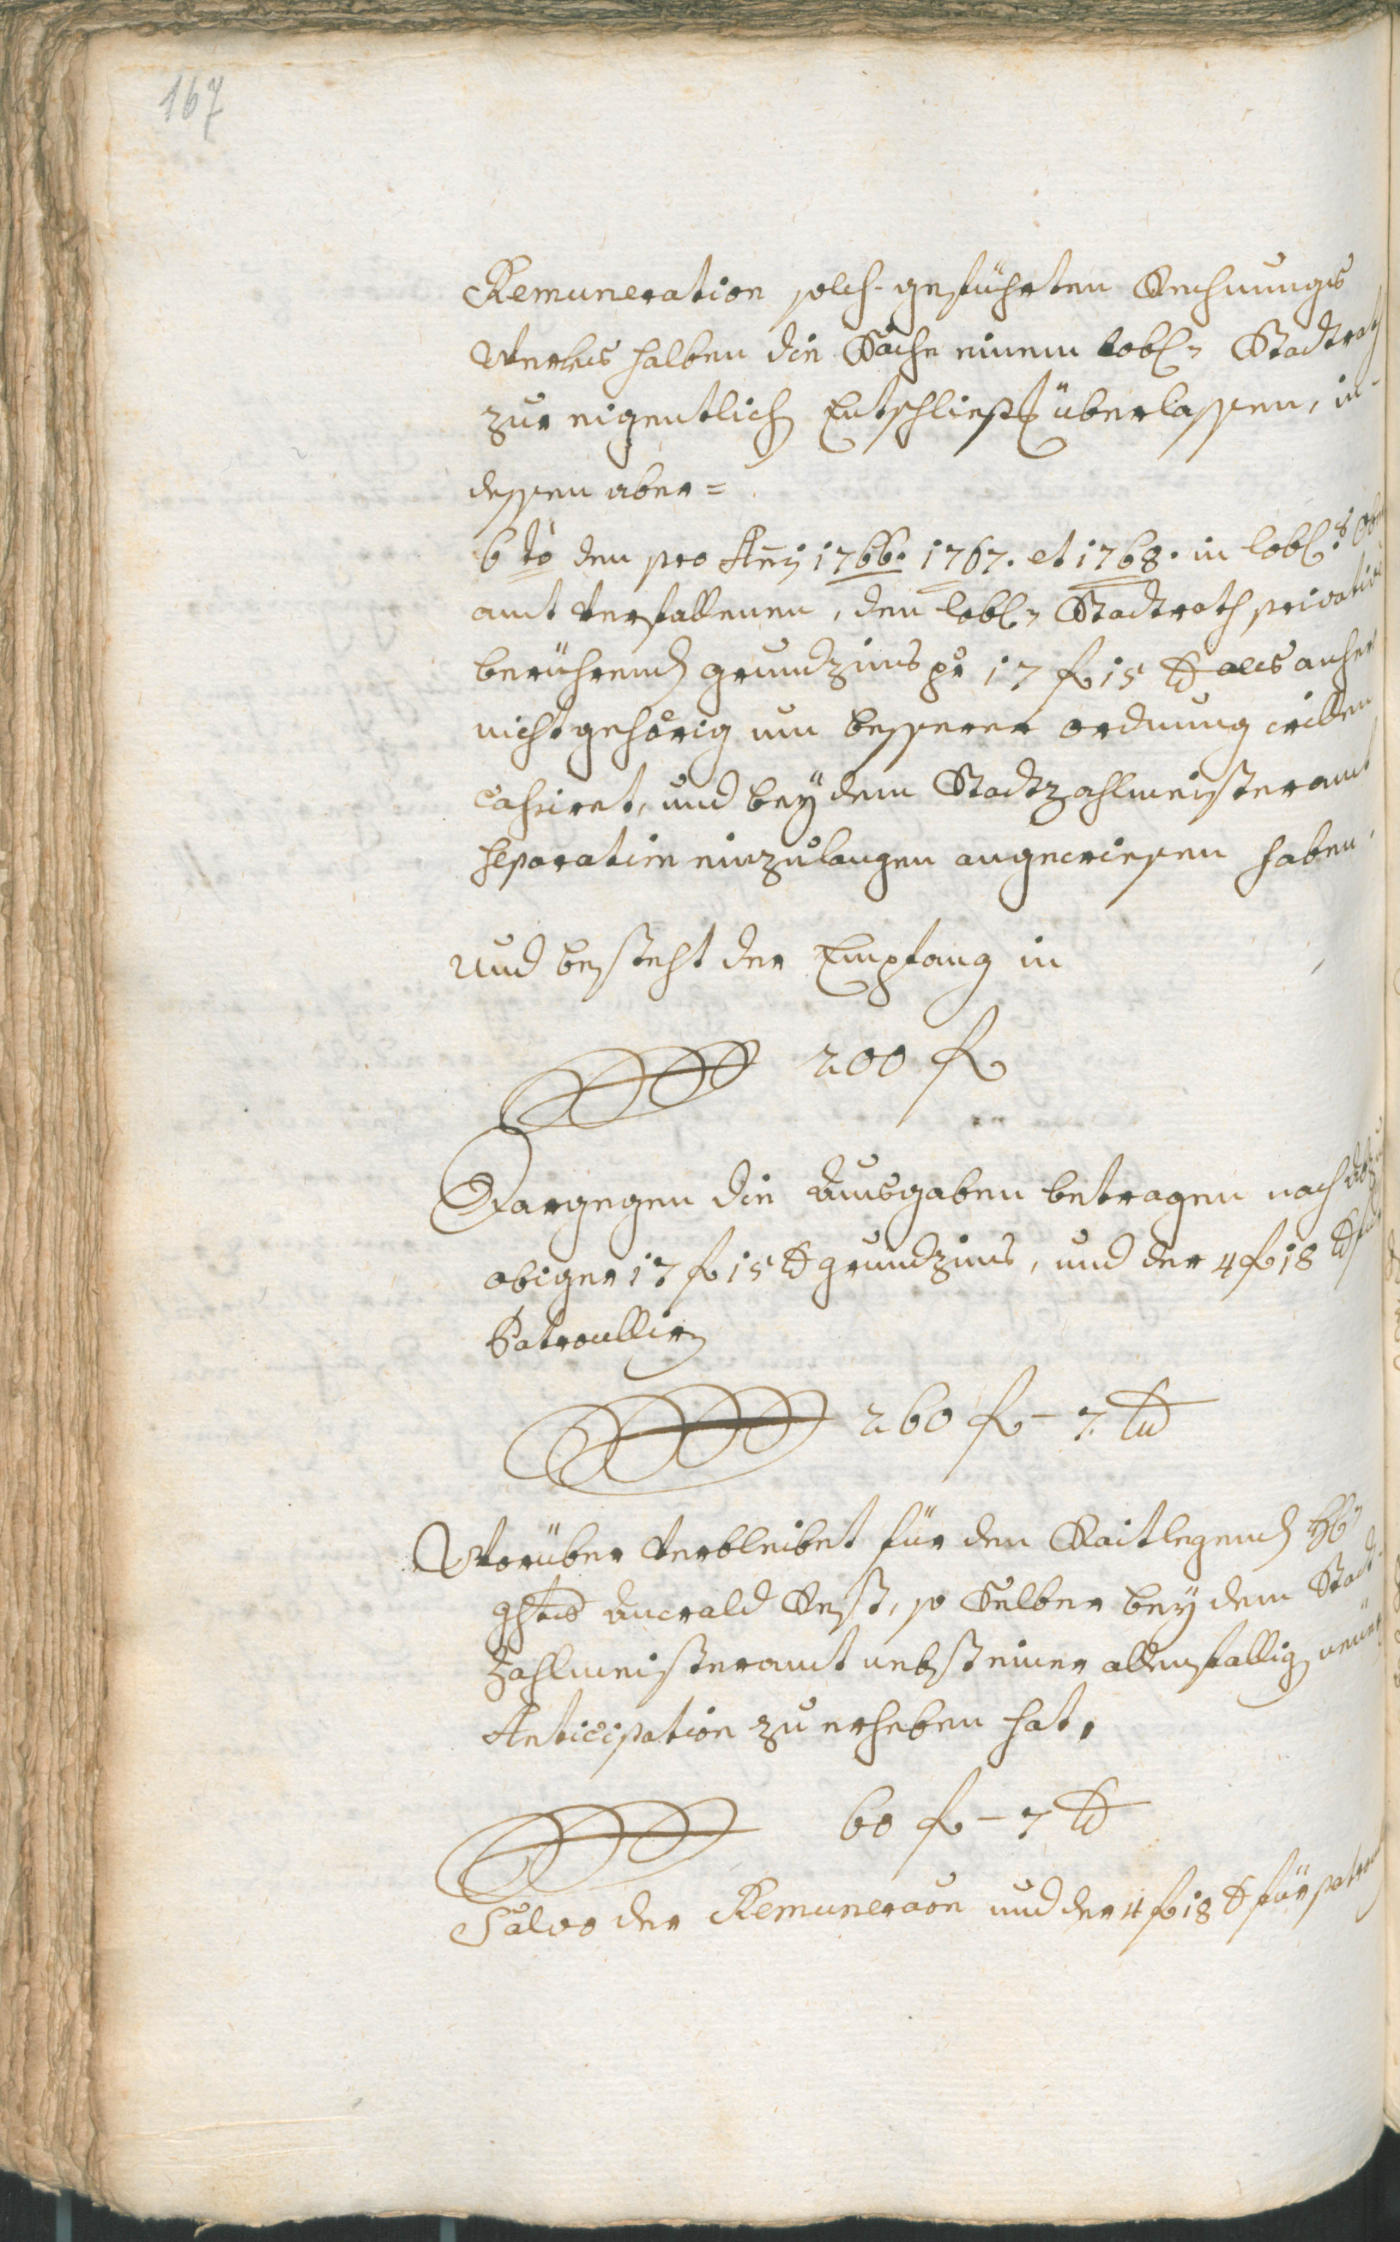 167
Remuneration solch-geführten Rechnungs
Werkhs halben die Sache einem Lobl: Stadtrath
zur eigentlich Entschließ überlassen, in-
dessen aber =
6to den pro Anis 1766. 1767. et 1768. in Lobl:
amt verfallenen, den Lobl: Stadtrath privative
berührend grundzins pr 17 f 15 x als anher
nicht gehörig um besserer ordnung willen
cassiret, und bey dem Stadtzahlmeisteramt
separatim einzulangen angewiesen haben.
Und besteht der Empfang in
200 f
Dargegen die Ausgaben betragen nach
obiger 17 f 15 x grundzins, und der 4 f 18 x für
Patroullirn
260 f - 7 x
Worüber verbleibet für den Raitlegend H:
Oswald Rest, so Selber bey dem Stadt
Zahlmeisteramt nebst einer allenfallig
Anticipation zu erheben hat,
60 f - 7 x
Salvo der Remuneraon und der 4 f 18 x für